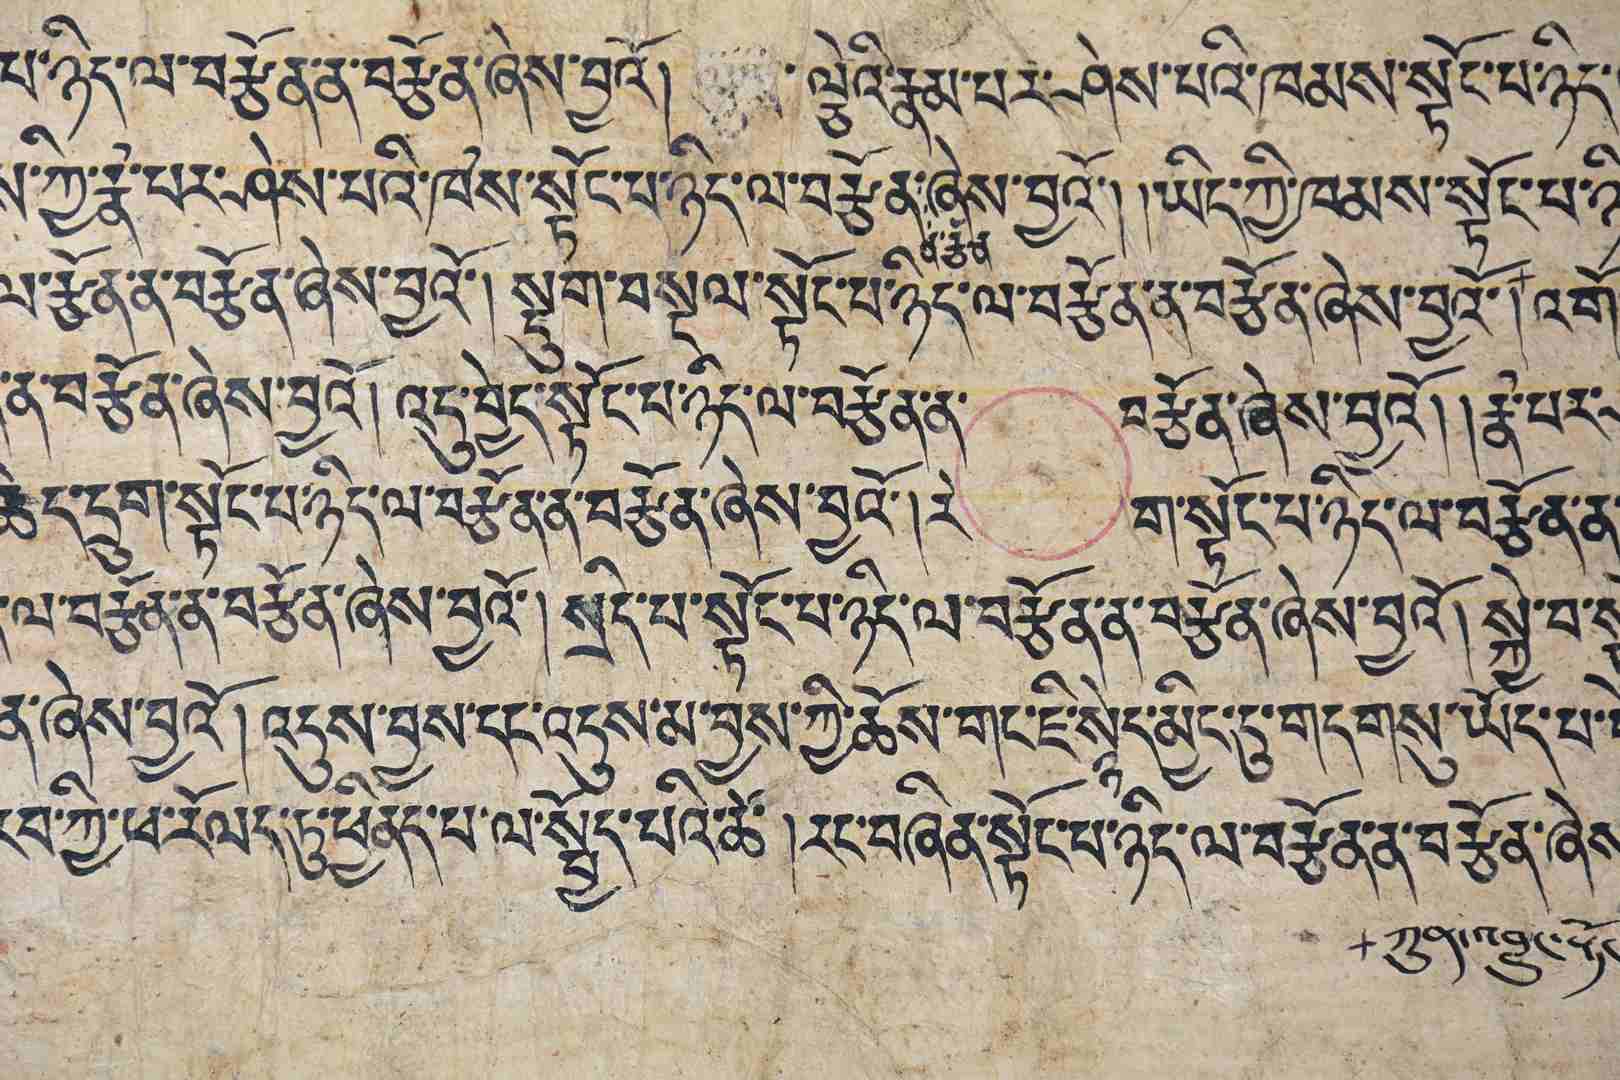 པ་ཉིད་ལ་བརྩོན་ན་བརྩོན་ཞེས་བྱའོ། ་ལྕེའི་རྣམ་པར་ཤེས་པའི་ཁམས་སྟོང་པ་ཉིད་
ས་ཀྱི་རྣཾ་པར་ཤེས་པའི་ཁཾས་སྟོང་པ་ཉིད་ལ་བརྩོན་ཞེས་བྱའོ། །ཡིད་ཀྱི་ཁམས་སྟོང་པ་ཉི
ན་བརྩོན
ལ་རྩོན་ན་བརྩོན་ཞེས་བྱའོ། སྡུག་བསྔལ་སྟོང་པ་ཉིད་ལ་བརྩོན་ན་བརྩོན་ཞེས་བྱའོ་།+ འགོ
ན་བརྩོན་ཞེས་བྱའོ། འདུ་བྱེད་སྟོང་པ་ཉིད་ལ་བརྩོན་ན་ བརྩོན་ཞེས་བྱའོ། །རྣཾ་པར་
ཆེད་དྲུག་སྟོང་པ་ཉིད་ལ་བརྩོན་ན་བརྩོན་ཞེས་བྱའོ། རེ ག་སྟོང་པ་ཉིད་ལ་བརྩོན་ན
་ལ་བརྩོན་ན་བརྩོན་ཞེས་བྱའོ། སྲིད་པ་སྟོང་པ་ཉིད་ལ་བརྩོན་ན་བརྩོན་ཞེས་བྱའོ། སྐྱེ་བ་
ན་ཞེས་བྱའོ། འདུས་བྱས་དང་འདུས་མ་བྱས་ཀྱི་ཆོས་གང་ཇི་སྙེད་མིང་དུ་གདགསུ་ཡོད་པ་
བ་ཀྱི་ཕ་རོལད་ཏུ་ཕྱིནད་པ་ལ་སྤྱོད་པའི་ཚེ་ །རང་བཞིན་སྟོང་པ་ཉིད་ལ་བརྩོན་ན་བརྩོན་ཞེས